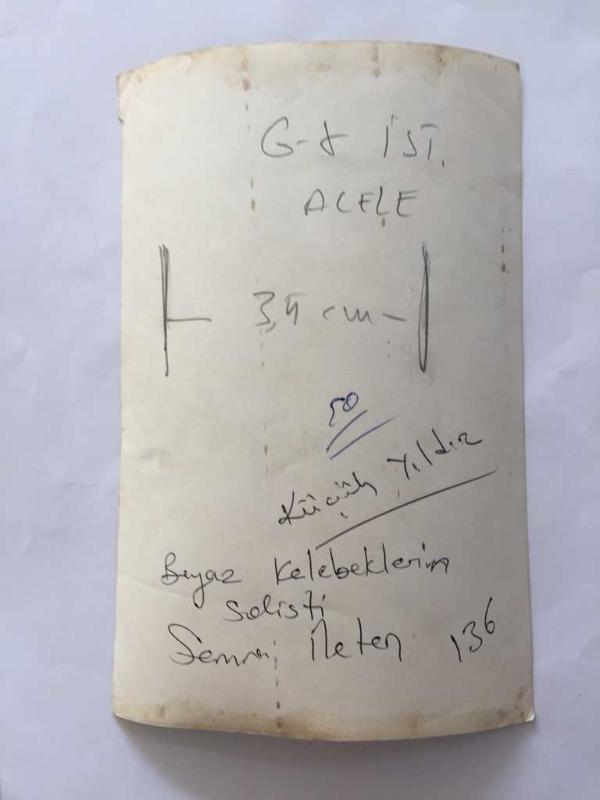 G-8 İST.
ACELE
3,5 cm
50
Küçük Yıldız
Beyaz Kelebeklerin
Solisti
Semra İleten 136